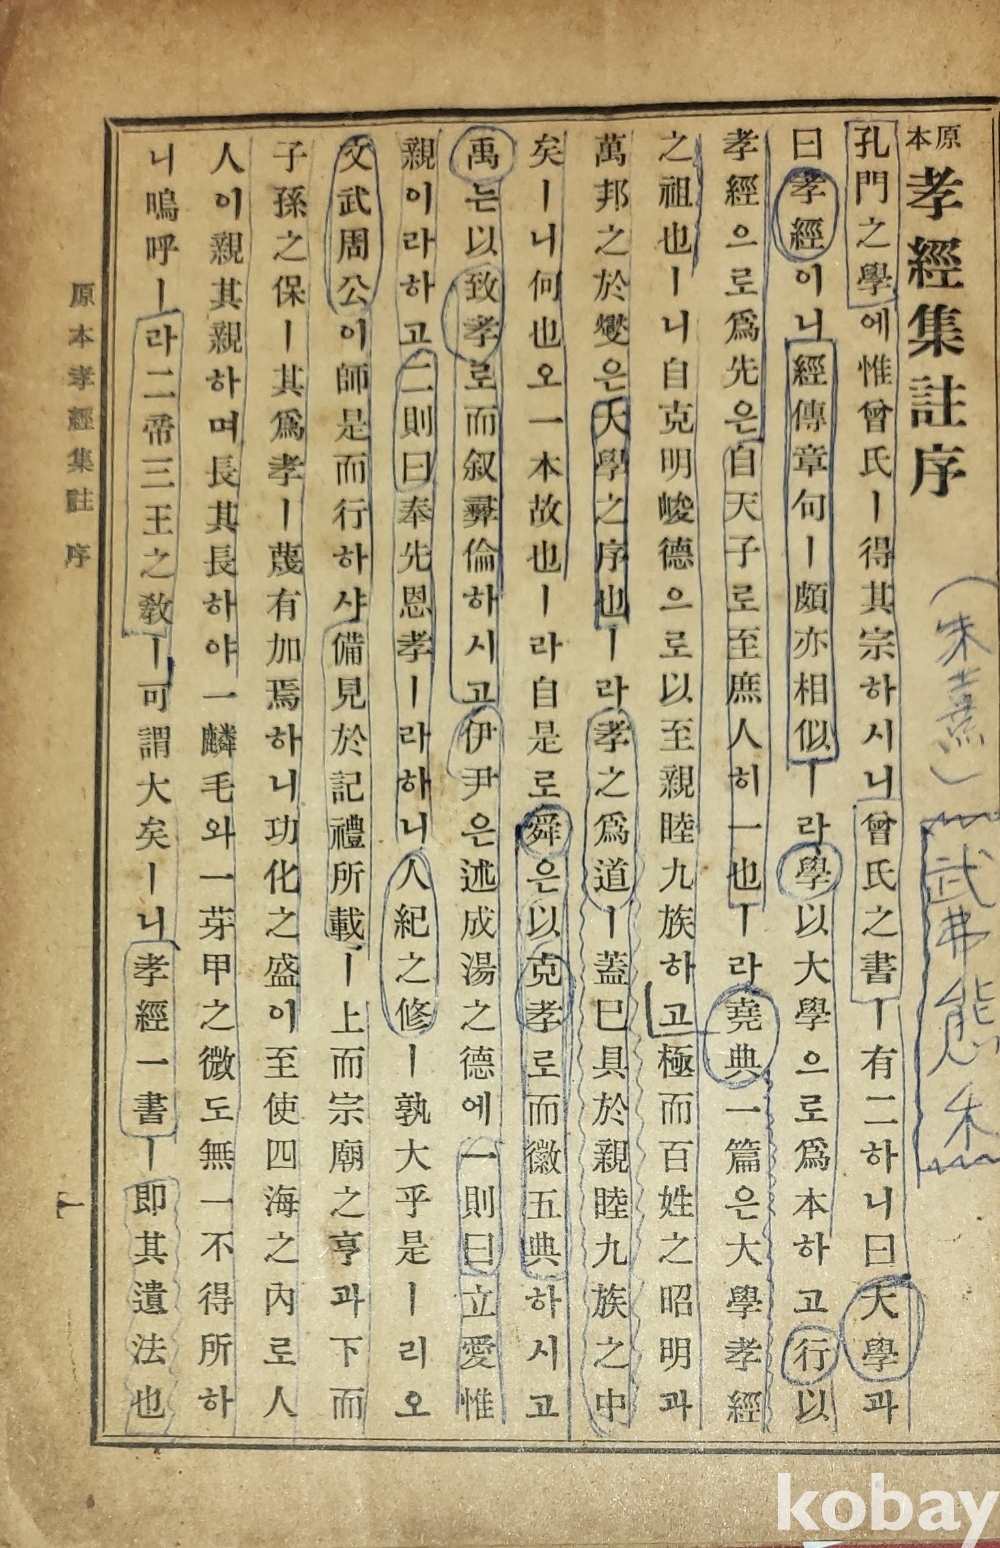 原本
孝經集註序
孔門之學에惟曾氏ㅣ得其宗하시니曾氏之書ㅣ有二하니曰大學과
曰孝經이니經傳章句ㅣ頗亦相似ㅣ라學以大學으로爲本하고行以
孝經으로爲先은自天子로至庶人히一也ㅣ라堯典一篇은大學孝經
之祖也ㅣ니自克明峻德으로以至親睦九族하고極而百姓之昭明과
萬邦之於變은大學之序也ㅣ라孝之爲道ㅣ蓋已具於親睦九族之中
矣ㅣ니何也오一本故也ㅣ라自是로舜은以克孝로而徽五典하시고
禹는以致孝로而叙彛倫하시고伊尹은述成湯之德에一則曰立愛惟
親이라하고二則曰奉先思孝ㅣ라하니人紀之修ㅣ孰大乎是ㅣ리오
文武周公이師是而行하샤備見於記禮所載ㅣ上而宗廟之亨과下而
子孫之保ㅣ其爲孝ㅣ蔑有加焉하니功化之盛이至使四海之內로人
人이親其親하며長其長하야一麟毛와一芽甲之微도無一不得所하
니嗚呼ㅣ라二帝三王之敎ㅣ可謂大矣ㅣ니孝經一書ㅣ卽其遺法也
原本孝經集註 序
一
(朱熹)
kobay